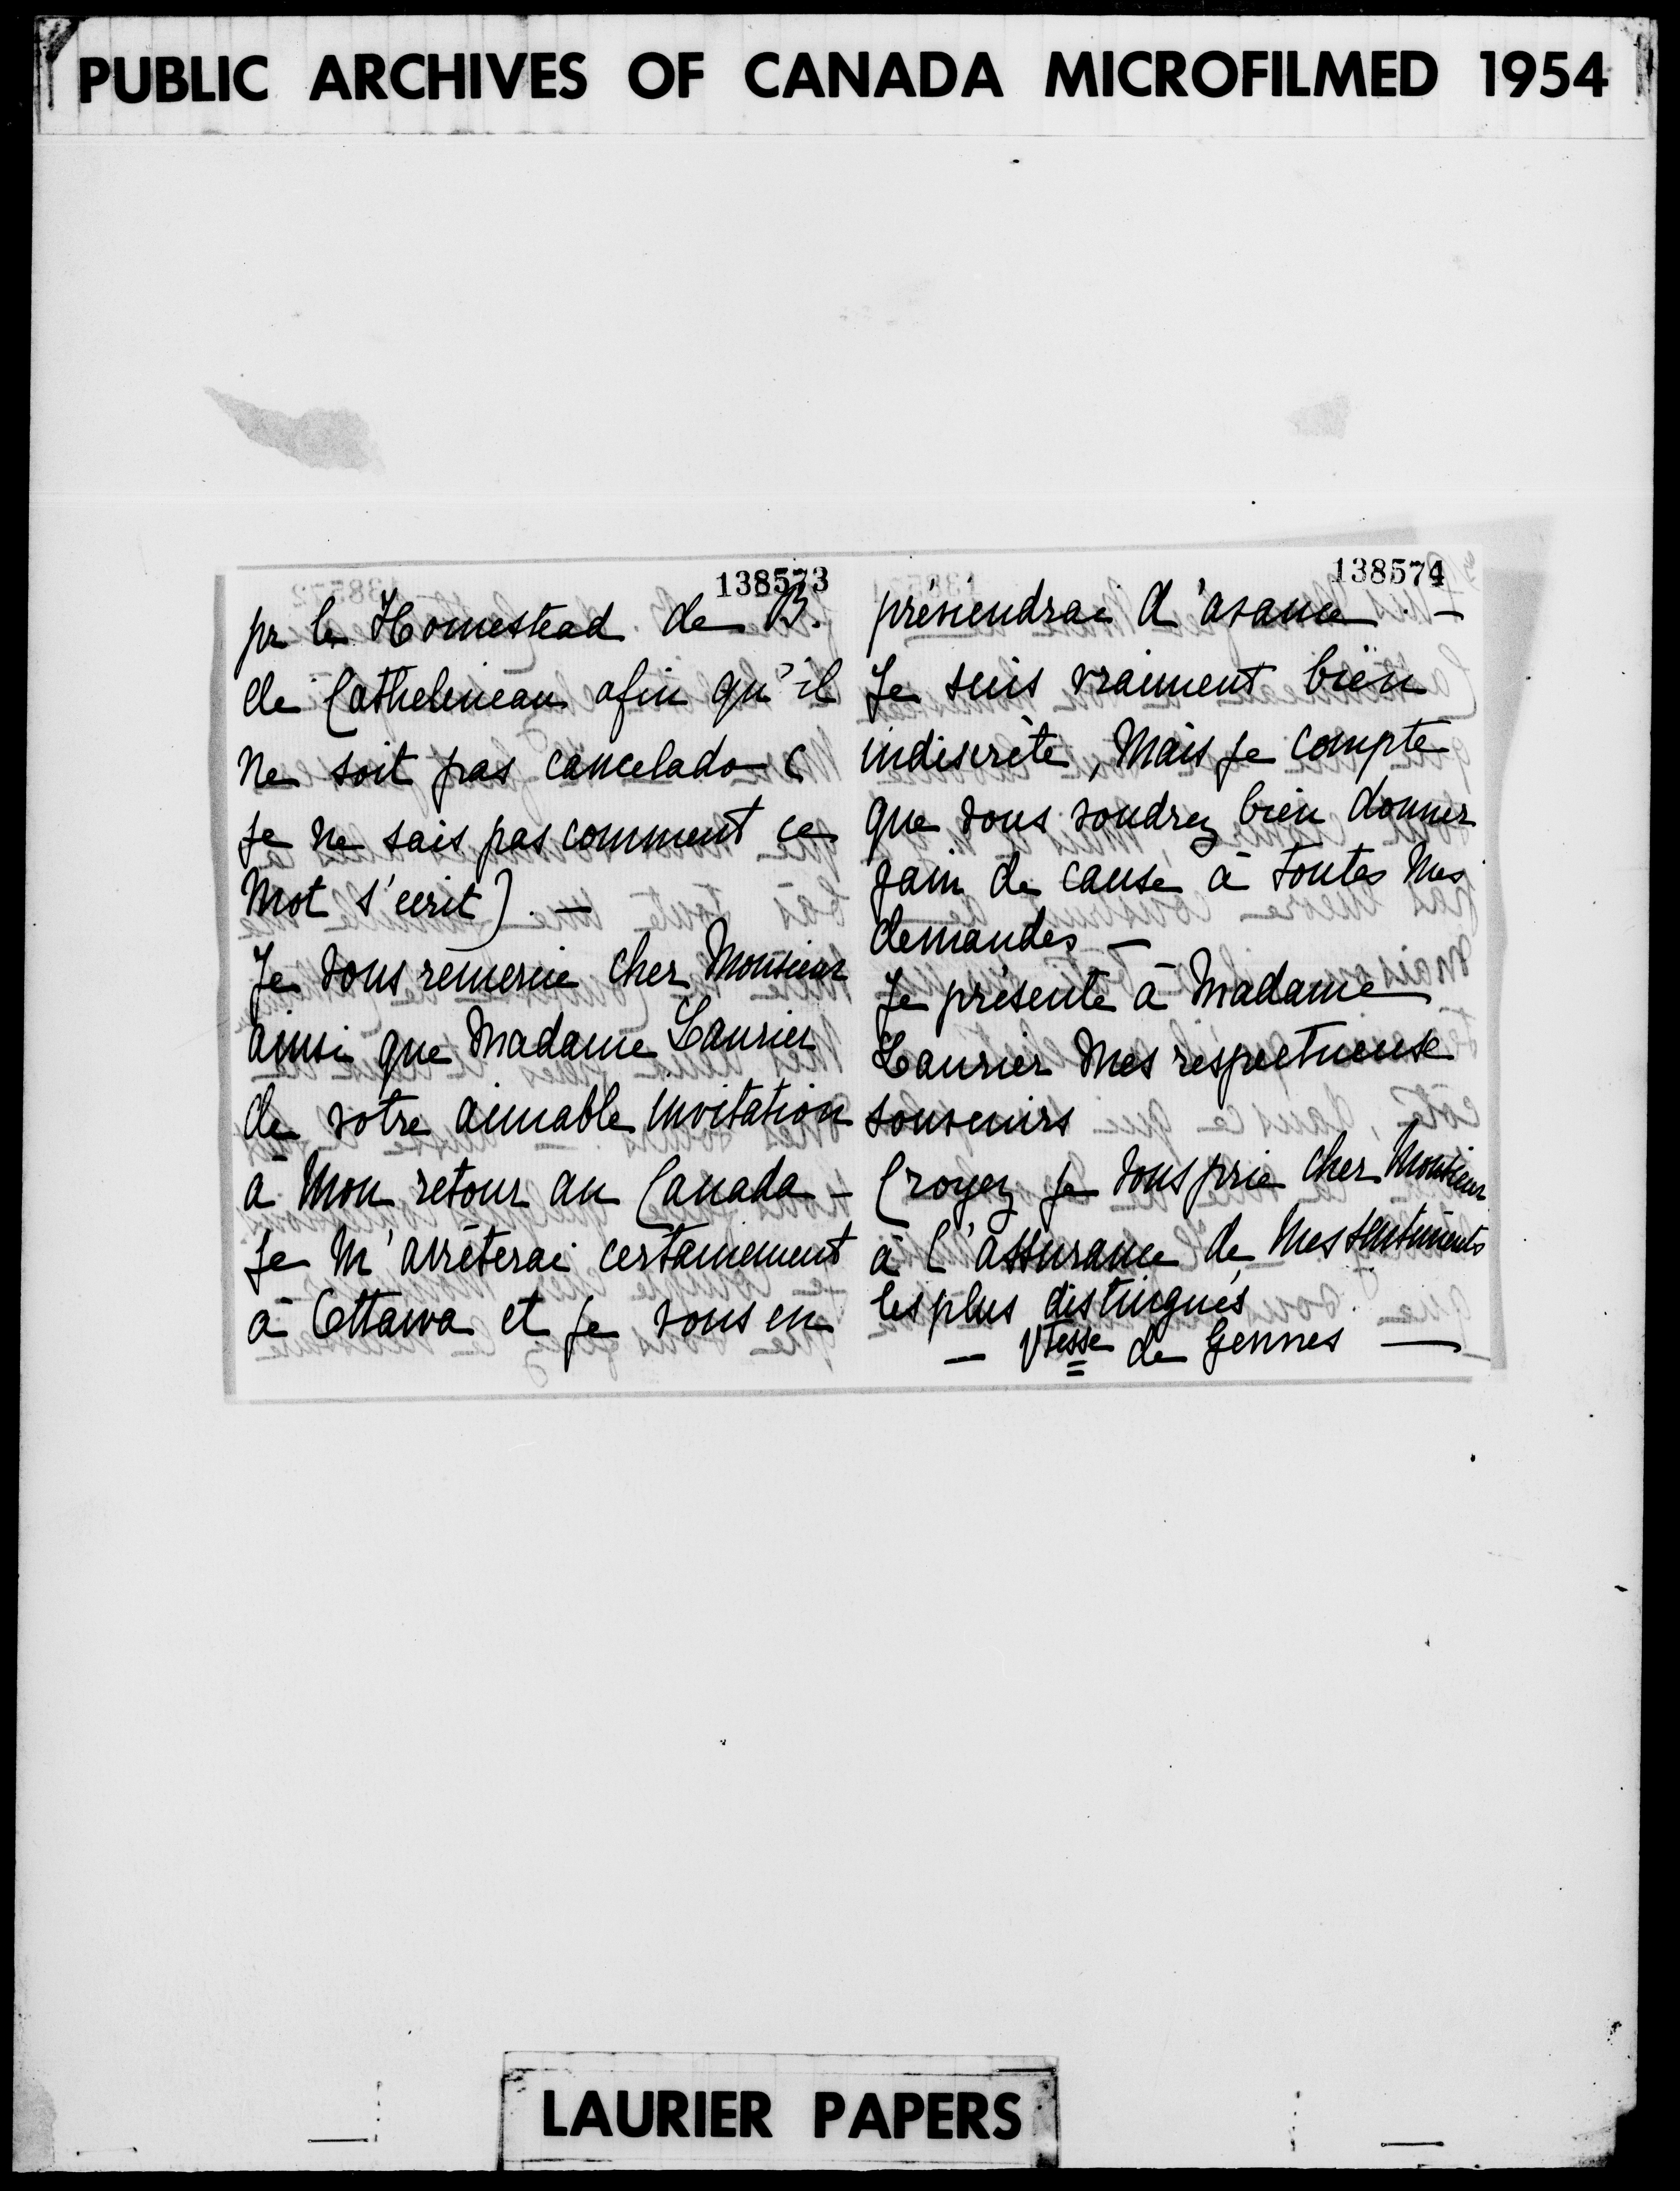 PUBLIC ARCHIVES OF CANADA MICROFILMED 1954
138573
pr le Homestead de B.
de Cathelineau afin qu'il
ne soit pas cancelado (
je ne sais pas comment ce
mot s'ecrit). —
Je vous remercie cher Monsieur
ainsi que Madame Laurier
de votre aimable invitation
à mon retour au Canada —
je m'arrêterai certainement
à Ottawa et je vous en
138574
préviendrai d'avance —
Je suis vraiment bien
indiscrète, mais je compte
que vous voudrez bien donner
gain de cause à toutes mes
demandes —
Je présente à Madame
Laurier mes respectueuse
souvenirs
Croyez je vous prie cher Monsieur
à l'assurance de mes sentiments
les plus distingués
— Vtesse de Gennes —
LAURIER PAPERS